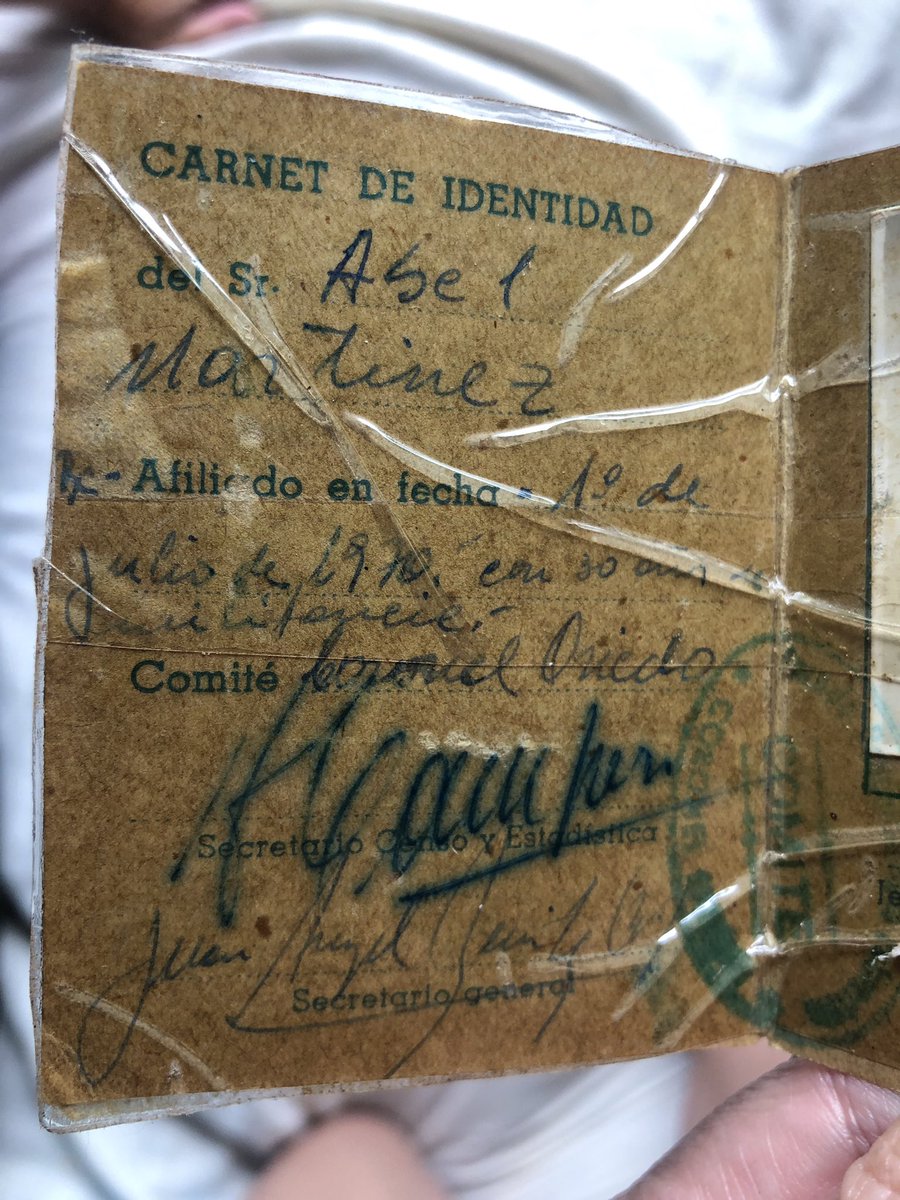 CARNET DE IDENTIDAD
del Sr. Abel
Martinez
Afiliado en fecha - 1º de
Julio de 19 con 30 años de
militancia.-
Comité Coronel Oviedo
Secretario Censo y Estadística
Juan Angel
Secretario general
COMITE